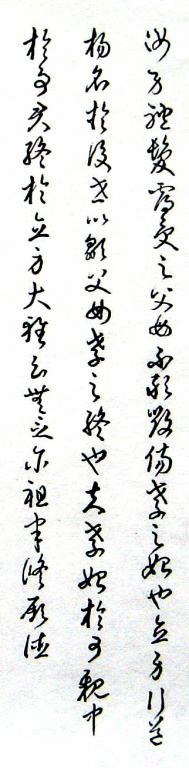 汝身體髮膚受之父母不敢毀傷孝之始也立身行道
揚名於後世以顯父母孝之終也夫孝始於事親中
於事君終於立身大雅云無念尔祖聿脩厥德